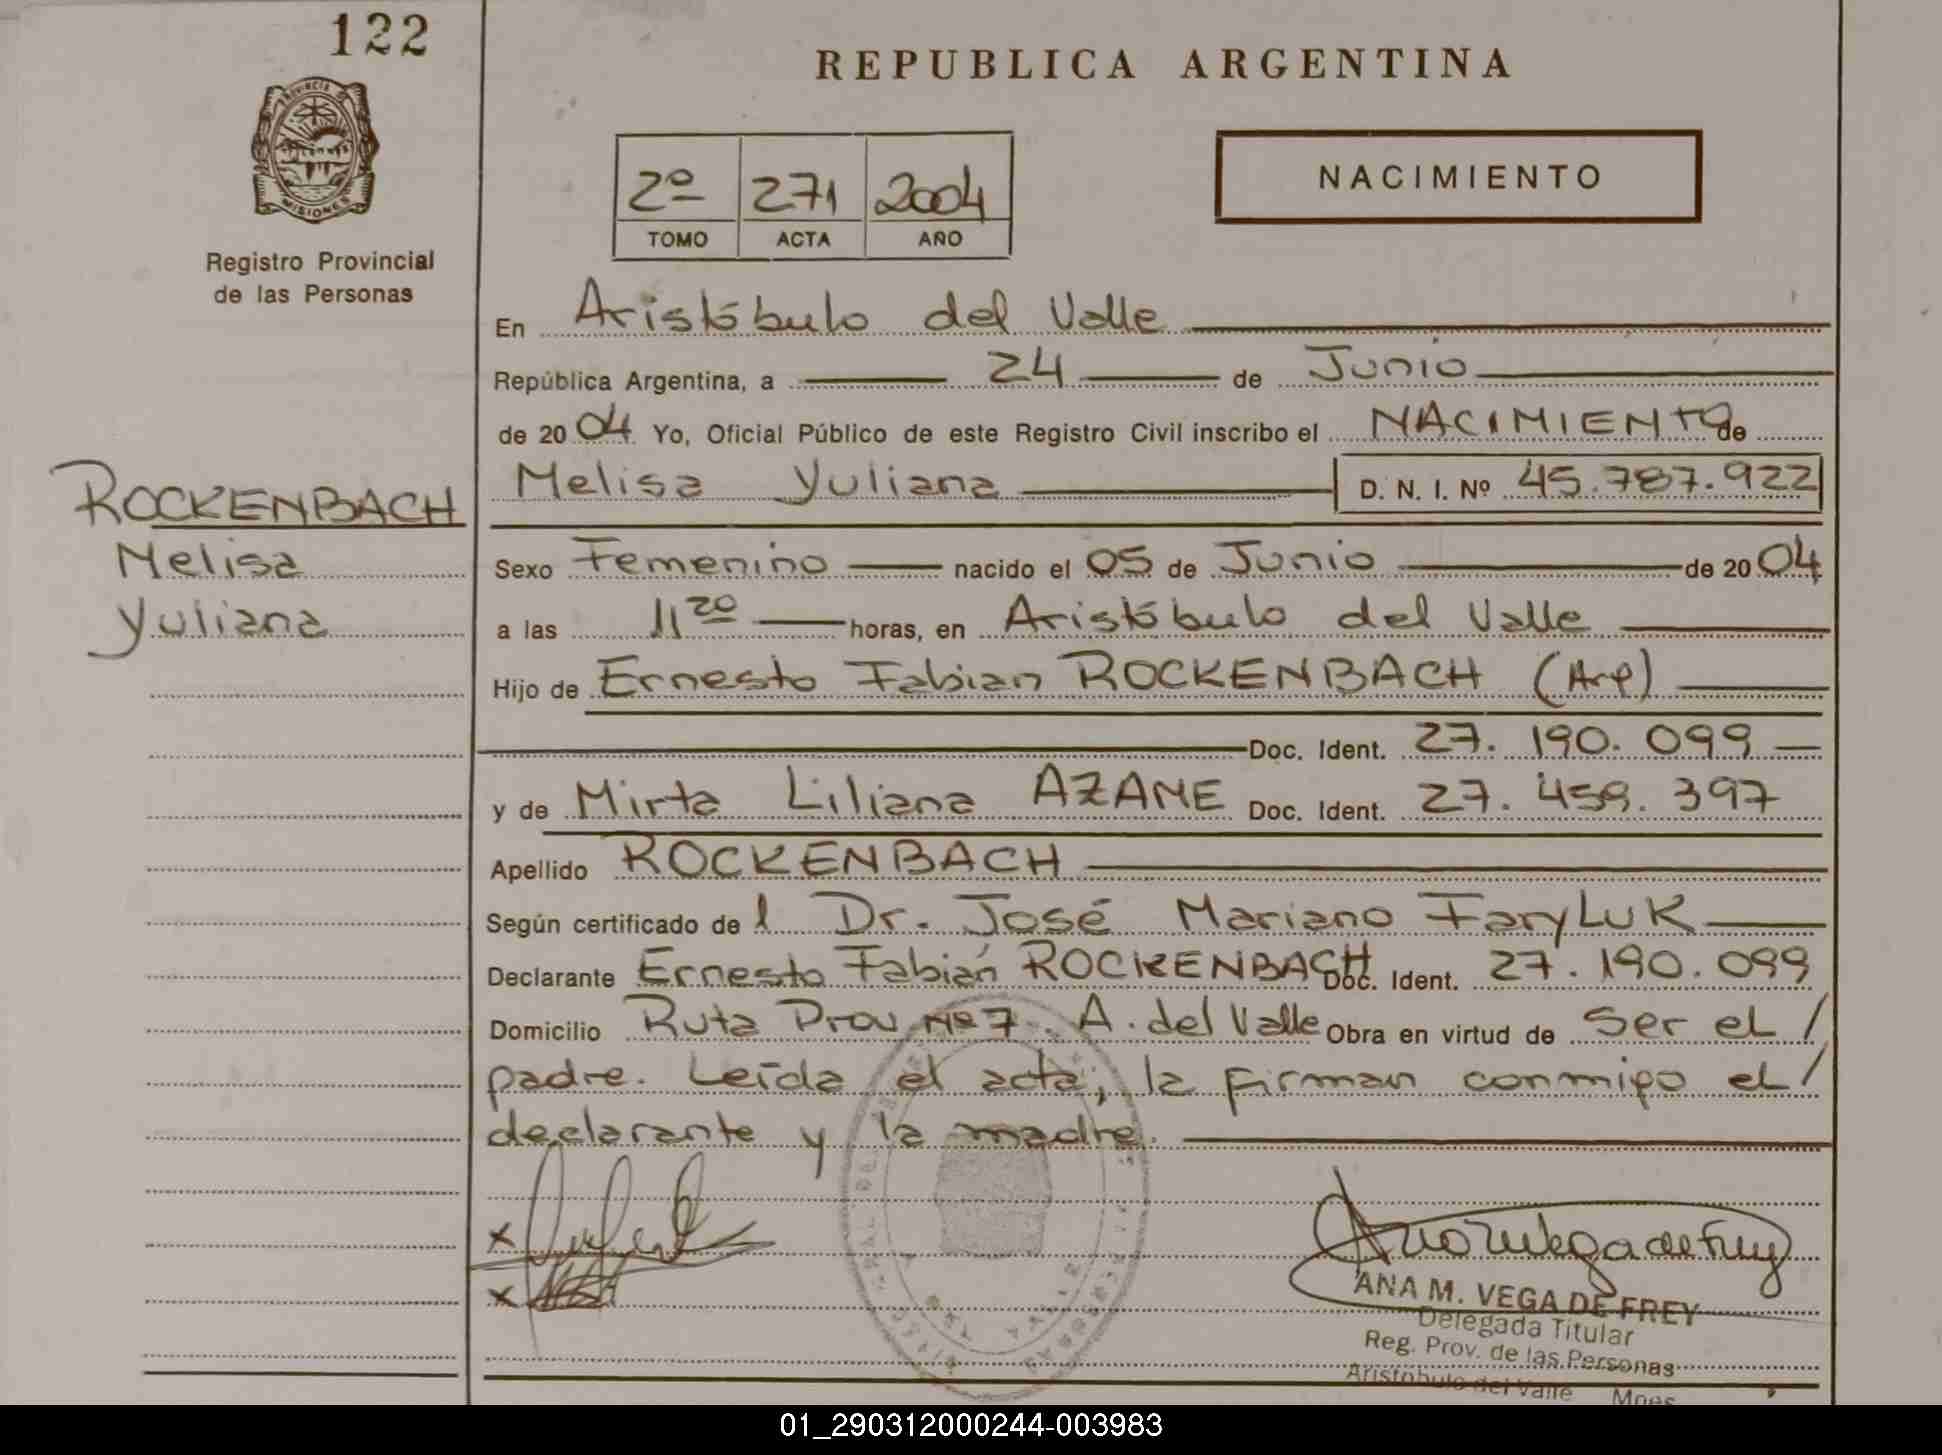 122
REPUBLICA ARGENTINA
PROVINCIA DE
MISIONES
Registro Provincial
de las Personas
2º 271 2004
TOMO ACTA AÑO
NACIMIENTO
En Aristóbulo del Valle
República Argentina, a 24 de Junio
de 2004 Yo, Oficial Público de este Registro Civil inscribo el NACIMIENTO de
Melisa Yuliana D. N. I. Nº 45.787.922
ROCKENBACH
Melisa
Yuliana
Sexo Femenino nacido el 05 de Junio de 2004
a las 11 20 horas, en Aristóbulo del Valle
Hijo de Ernesto Fabian ROCKENBACH (Arg)
Doc. Ident. 27. 190. 099
y de Mirta Liliana AZAME Doc. Ident. 27. 459. 397
Apellido ROCKENBACH
Según certificado del Dr. José Mariano FaryLuK
Declarante Ernesto Fabián ROCKENBACH Doc. Ident. 27. 190. 099
Domicilio Ruta Prov Nº 7. A. del Valle Obra en virtud de ser el /
padre. Leída el acta, la firman conmigo el /
declarante y la madre.
x
x
Ana M Vega de Frey
ANA M. VEGA DE FREY
Delegada Titular
Reg. Prov. de las Personas
Aristóbulo del Valle Mnes
01_290312000244-003983